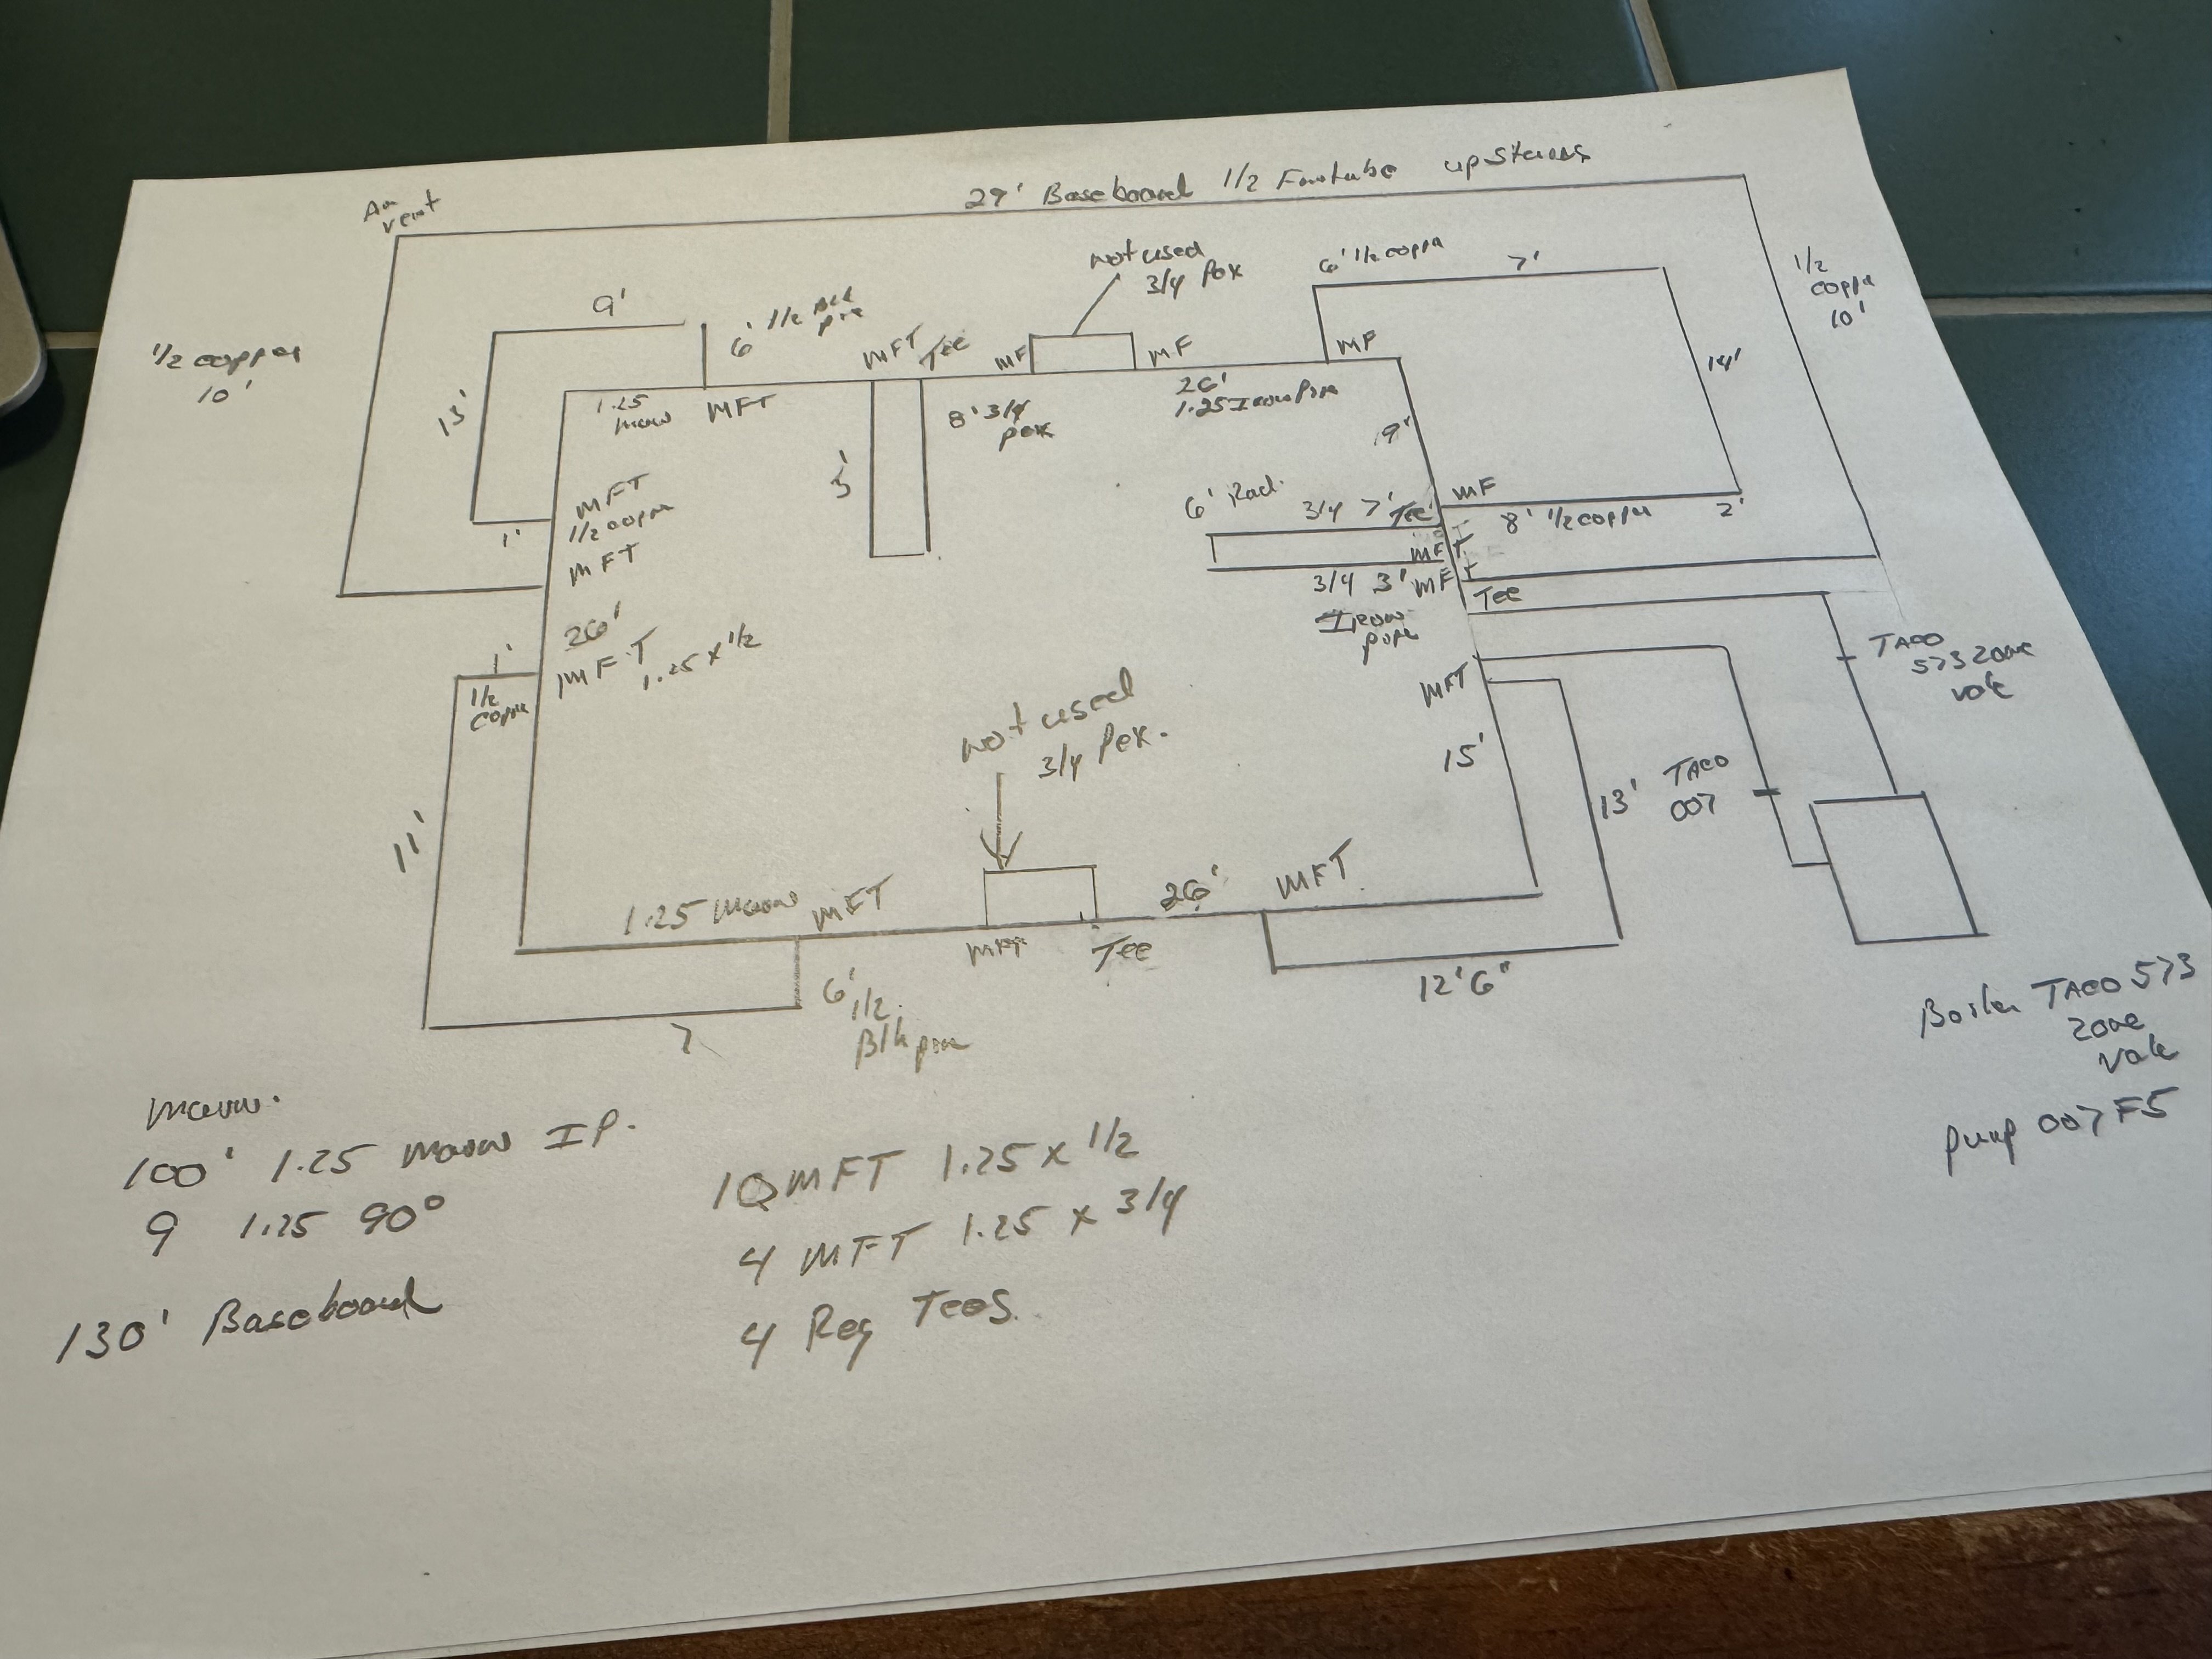 29' Baseboard 1/2 upstairs
vent
not used
3/4 Pex
6' 1/2 coppr
7'
1/2
coppr
10'
9'
6' 1/2
MFT Tee
MF
MF
MF
1/2 copper
10'
13'
1.25
main
MFT
8' 3/4
pex
26'
1.25 Iron Pipe
19'
14'
5'
MFT
1/2 coppr
MFT
1'
6' Rad.
3/4 7' Tee
MF
8' 1/2 coppr
2'
MFT
3/4 3' MFT
Iron
pipe
Tee
26'
MFT
1.25 x 1/2
1'
1/2
Coppr
TACO
573 Zone
valve
not used
3/4 Pex.
MFT
15'
13'
TACO
007
11'
1.25 Main
MFT
26'
MFT
MFT
Tee
12'6"
7
6'
1/2
Blk pipe
Boiler TACO 573
Zone
valve
pump 007 F5
Main.
100' 1.25 Main IP.
9 1.25 90°
130' Baseboard
10 MFT 1.25 x 1/2
4 MFT 1.25 x 3/4
4 Reg Tees.